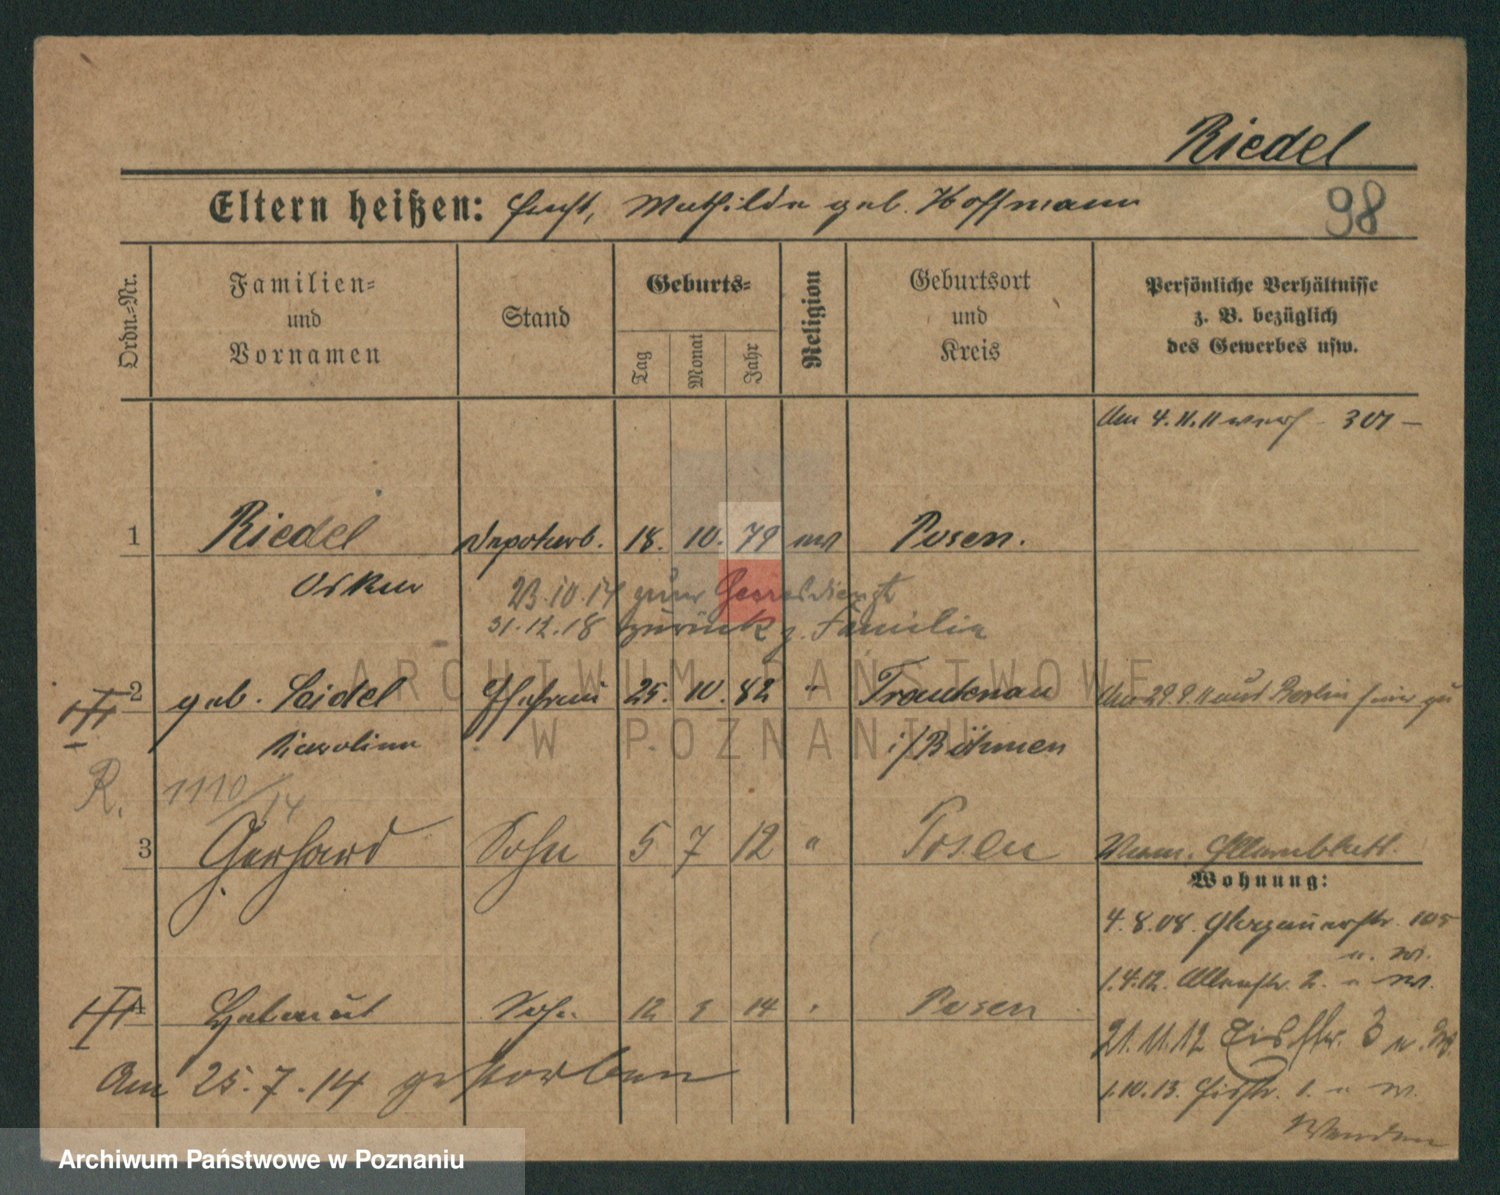 Riedel
98
Eltern heißen: Mathilde geb. Hoffmann
Ordn.-Nr.
Familien-
und
Vornamen
Stand
Geburts-
Tag
Monat
Jahr
Religion
Geburtsort
und
Kreis
Persönliche Verhältnisse
z. B. bezüglich
des Gewerbes usw.
Am 4.11.11
1 Riedel Depotarb. 18. 10. 79 Posen.
Oskar
23.10.14 zum Heeresdienst
31.12.18 zurück z. Familie
2 geb. Seidel Ehefrau 25. 10. 82 " Trautenau
Am 29.9.11 aus Berlin hier zu
Karoline i/Böhmen
R. 1110/14
3 Gerhard Sohn 5 7 12 " Posen
Wohnung:
4.8.08. Glogauerstr. 105
1.4.12. 2.
4 Helmut Sohn 12 3 14 " Posen
21.11.12 3
Am 25.7.14 gestorben
1.10.13. 1.
Wenden
ARCHIWUM PAŃSTWOWE
W POZNANIU
Archiwum Państwowe w Poznaniu